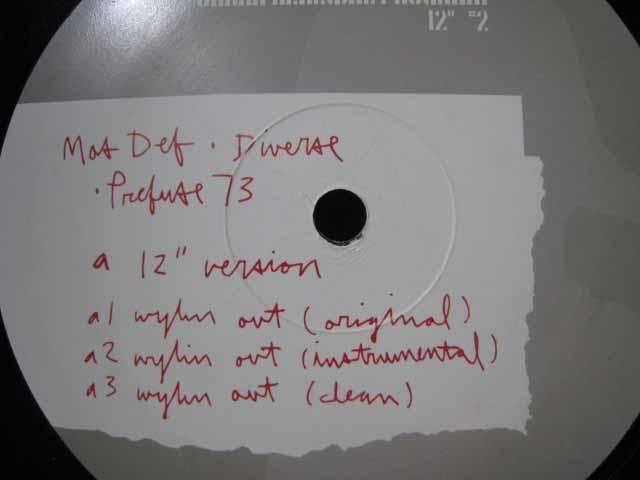 12" =2
Mos Def · Diverse
· Prefuse 73
a 12" version
a1 wylin out (original)
a2 wylin out (instrumental)
a3 wylin out (clean)